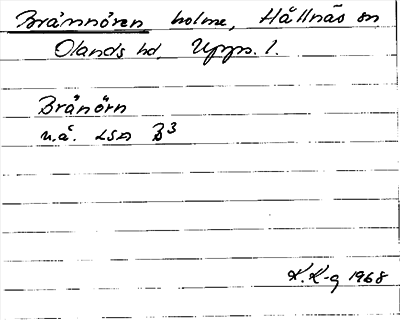 Brännören holme, Hållnäs sn
Olands hd, Upps. l.
Brånörn
u.å. LSA B3
K.K-g 1968